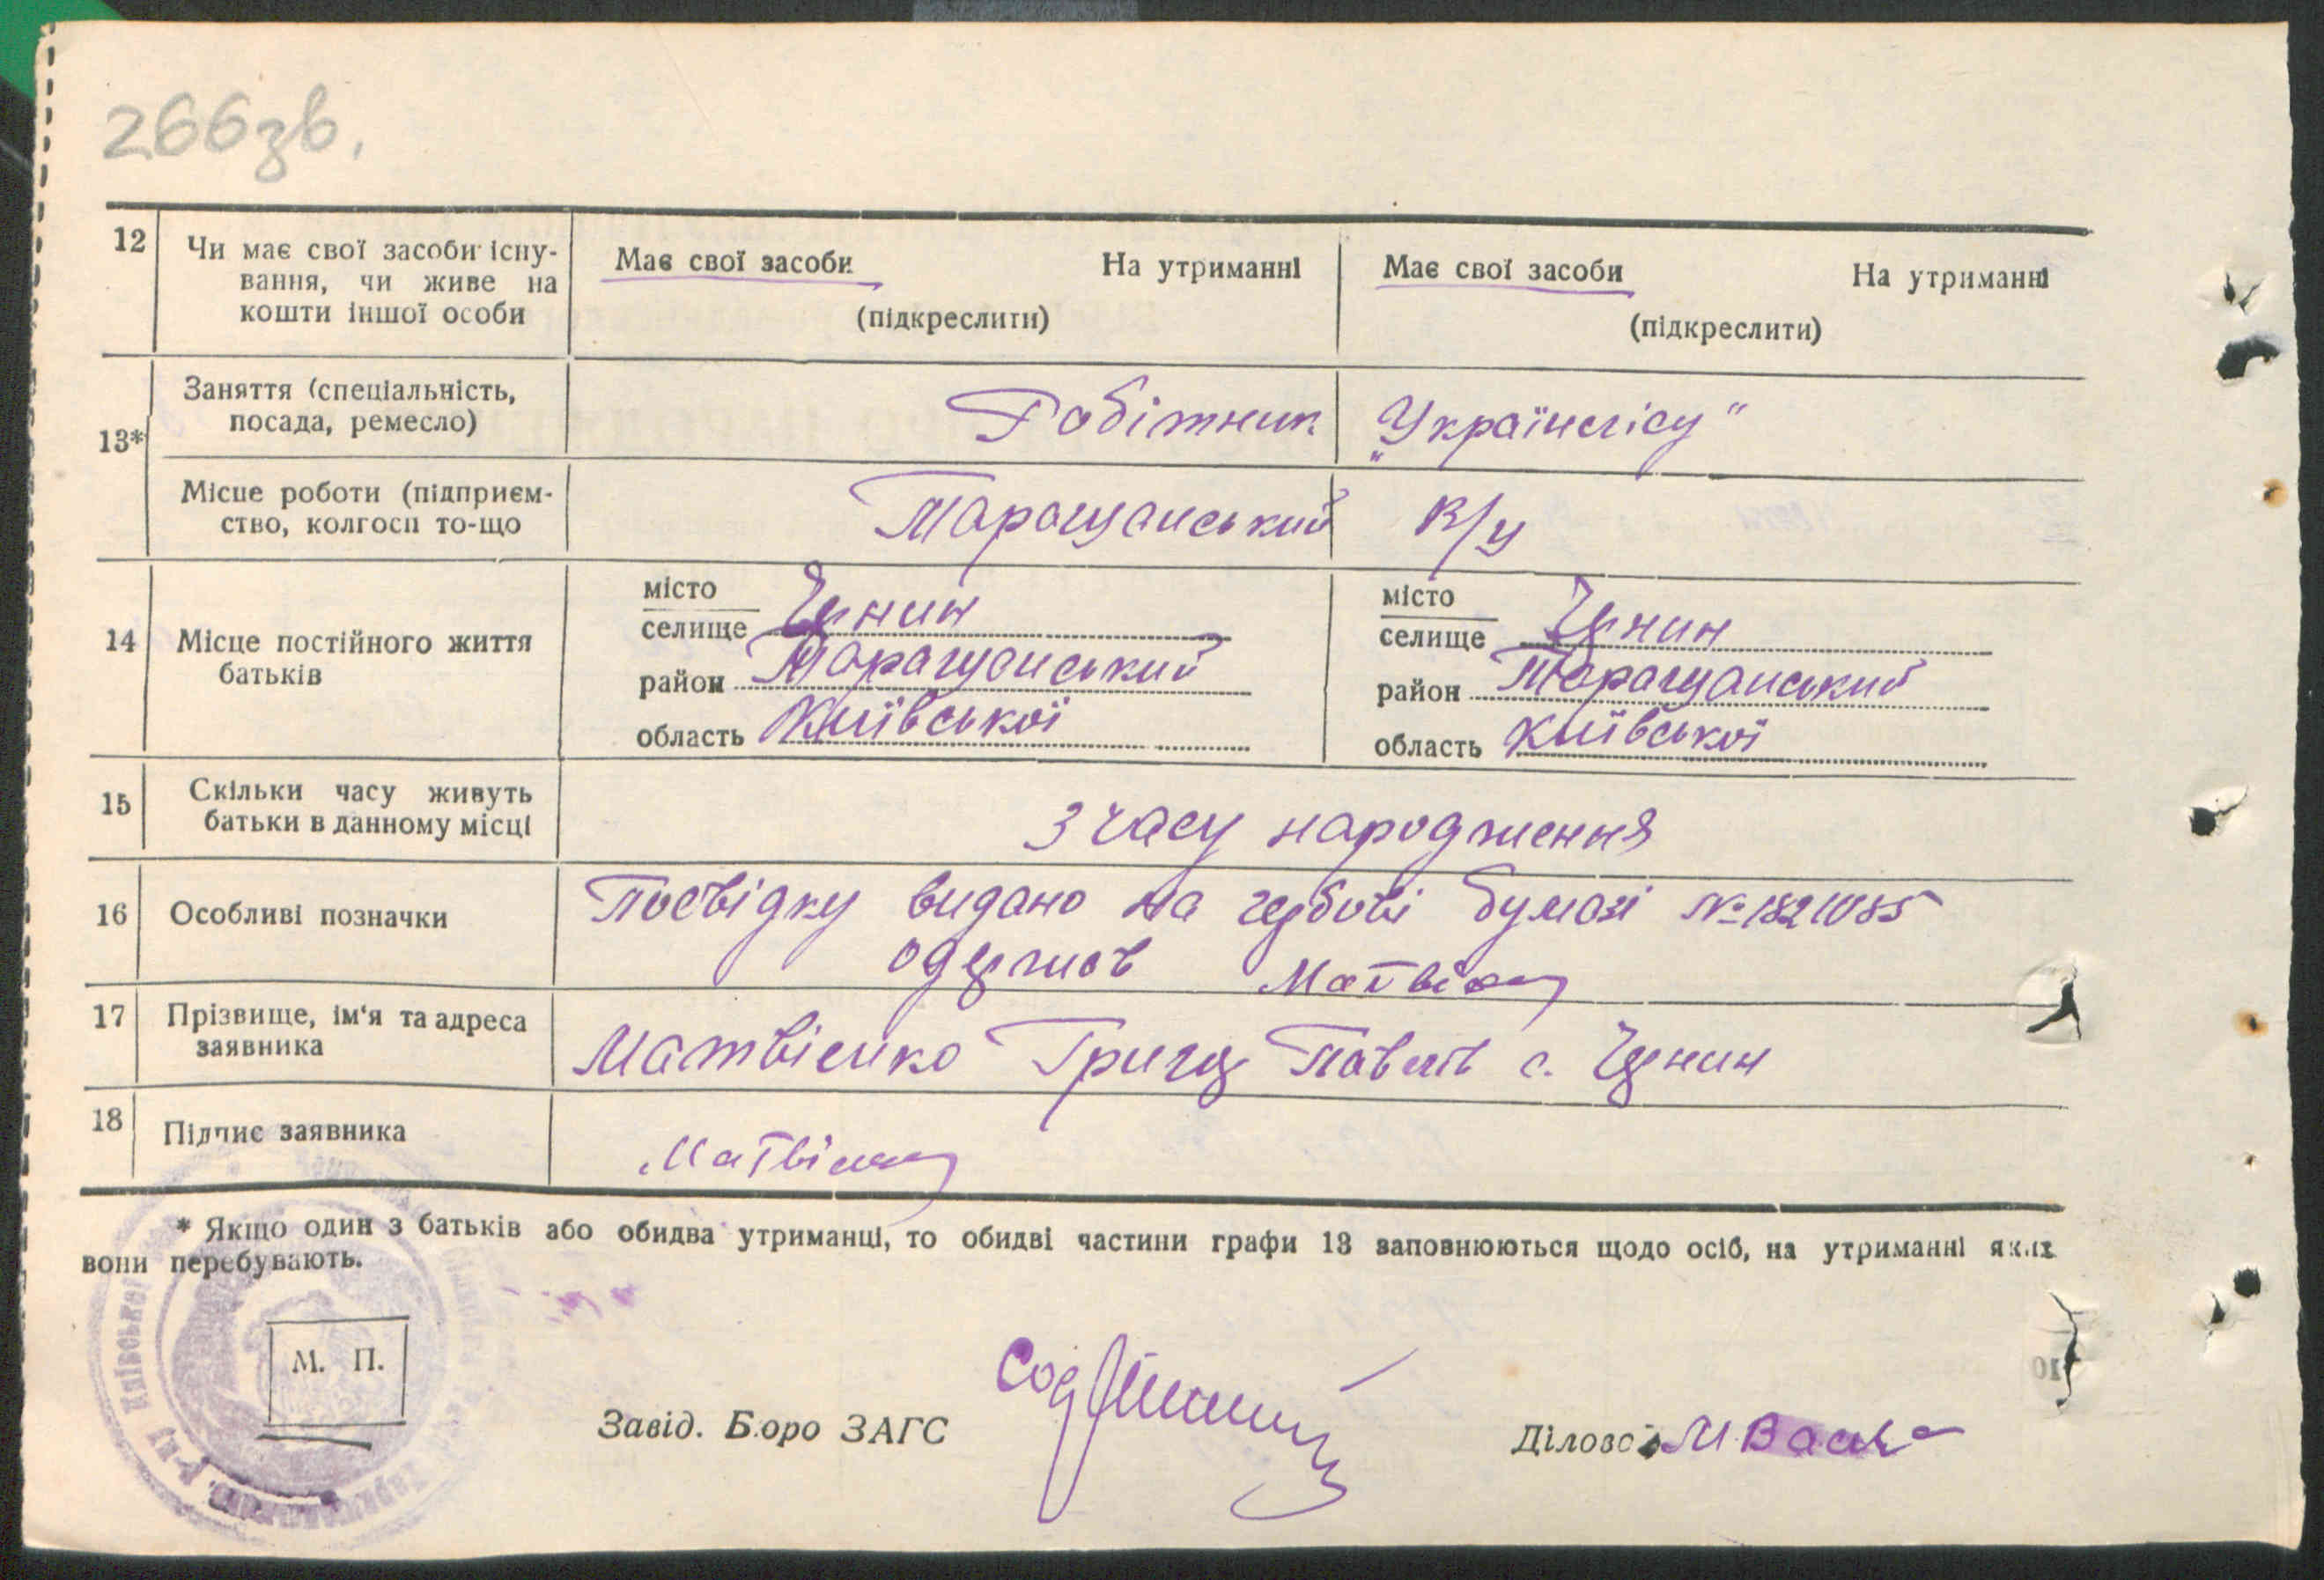 266зв.
12 Чи має свої засоби існу-
вання, чи живе на
кошти іншої особи
Має свої засоби На утриманні
(підкреслити)
Має свої засоби На утриманні
(підкреслити)
13*
Заняття (спеціальність,
посада, ремесло)
Робітник „Українлісу"
Місце роботи (підприєм-
ство, колгосп то-що
Таращанський в/у
14 Місце постійного життя
батьків
місто
селище
район Таращанський
область Київської
місто
селище
район Таращанський
область Київської
15 Скільки часу живуть
батьки в данному місці
З часу народження
16 Особливі позначки
Посвідку видано на гербові бумазі № 1821085
одержав
17 Прізвище, ім'я та адреса
заявника
Матвієнко Григор Павлов с.
18 Підпис заявника
* Якщо один з батьків або обидва утриманці, то обидві частини графи 13 заповнюються щодо осіб, на утриманні яких
вони перебувають.
М. П.
Завід. Бюро ЗАГС
Діловод
Київської